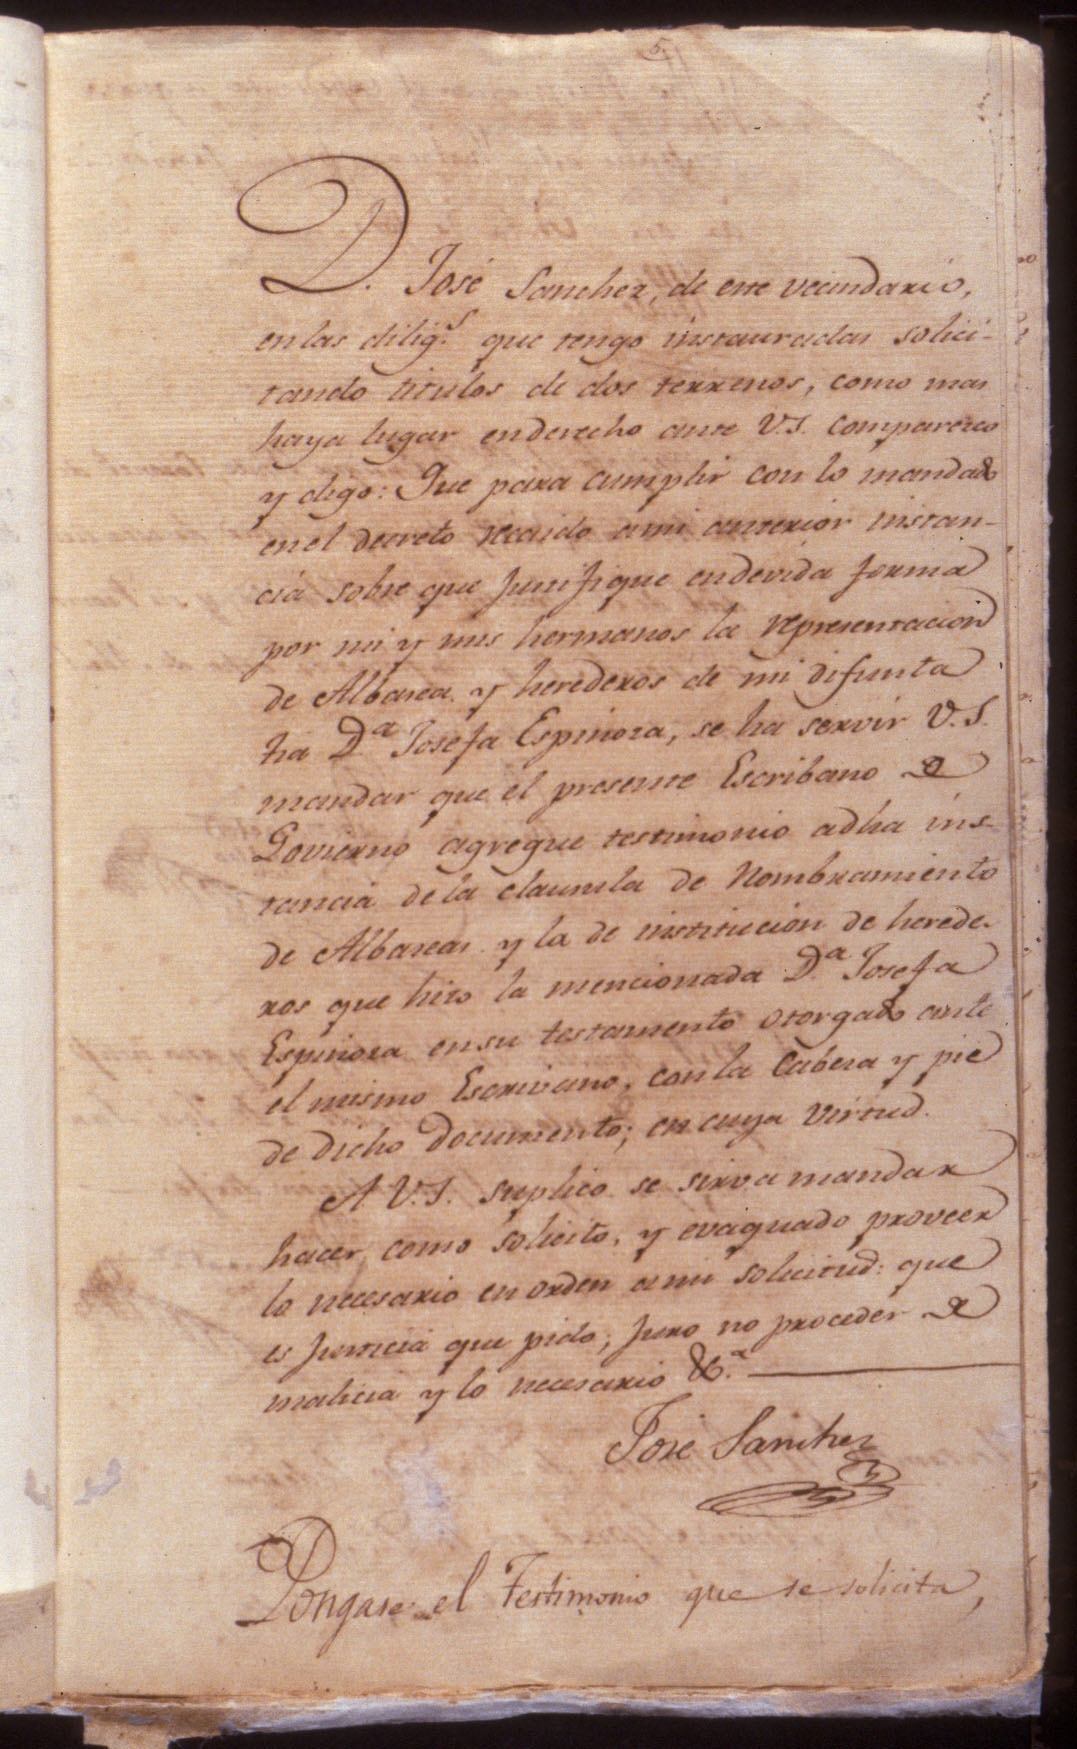 5
D. José Sanchez, de este vecindario,
en las dilig.s que tengo instauradas solici-
tando titulos de dos terrenos, como mas
haya lugar en derecho ante V.S. comparezco
y digo: Que para cumplir con lo mandado
en el decreto recaido a mi anterior instan-
cia sobre que justifique en devida forma
por mi y mis hermanos la representacion
de Albacea y herederos de mi difunta
tia D.a Josefa Espinoza, se ha servir V.S.
mandar que el presente Escribano de
Govierno agregue testimonio adha ins-
tancia de la clausula de Nombramiento
de Albaceas y la de institucion de herede-
ros que hizo la mencionada D.a Josefa
Espinoza en su testamento otorgado ante
el mismo Escrivano, con la Cabeza y pie
de dicho Documento; en cuya virtud.
A V.S. suplico se sirva mandar
hacer, como solicito, y evaquado proveer
lo necesario en orden a mi solicitud: que
es justicia que pido; juro no proceder de
malicia y lo necesario &.a
José Sanchez
Pongase el Testimonio que se solicita,